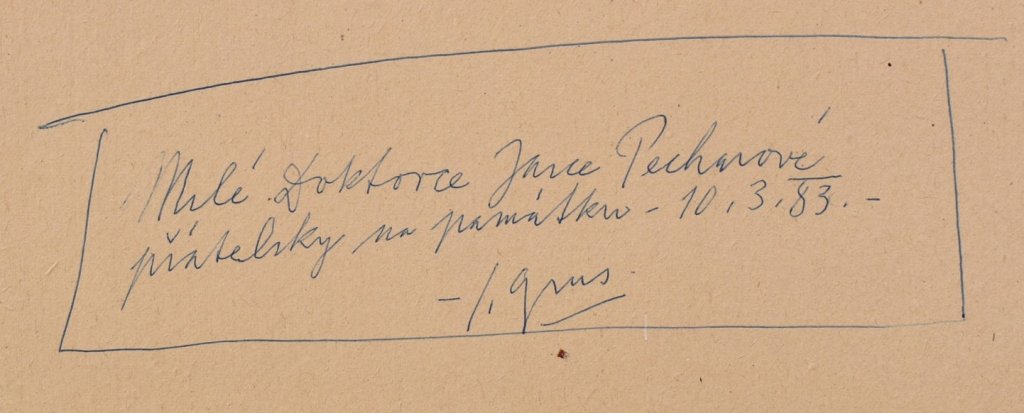 Milé Doktorce Jarce Pecharové
přátelsky na památku - 10.3.83. -
- J. Grus